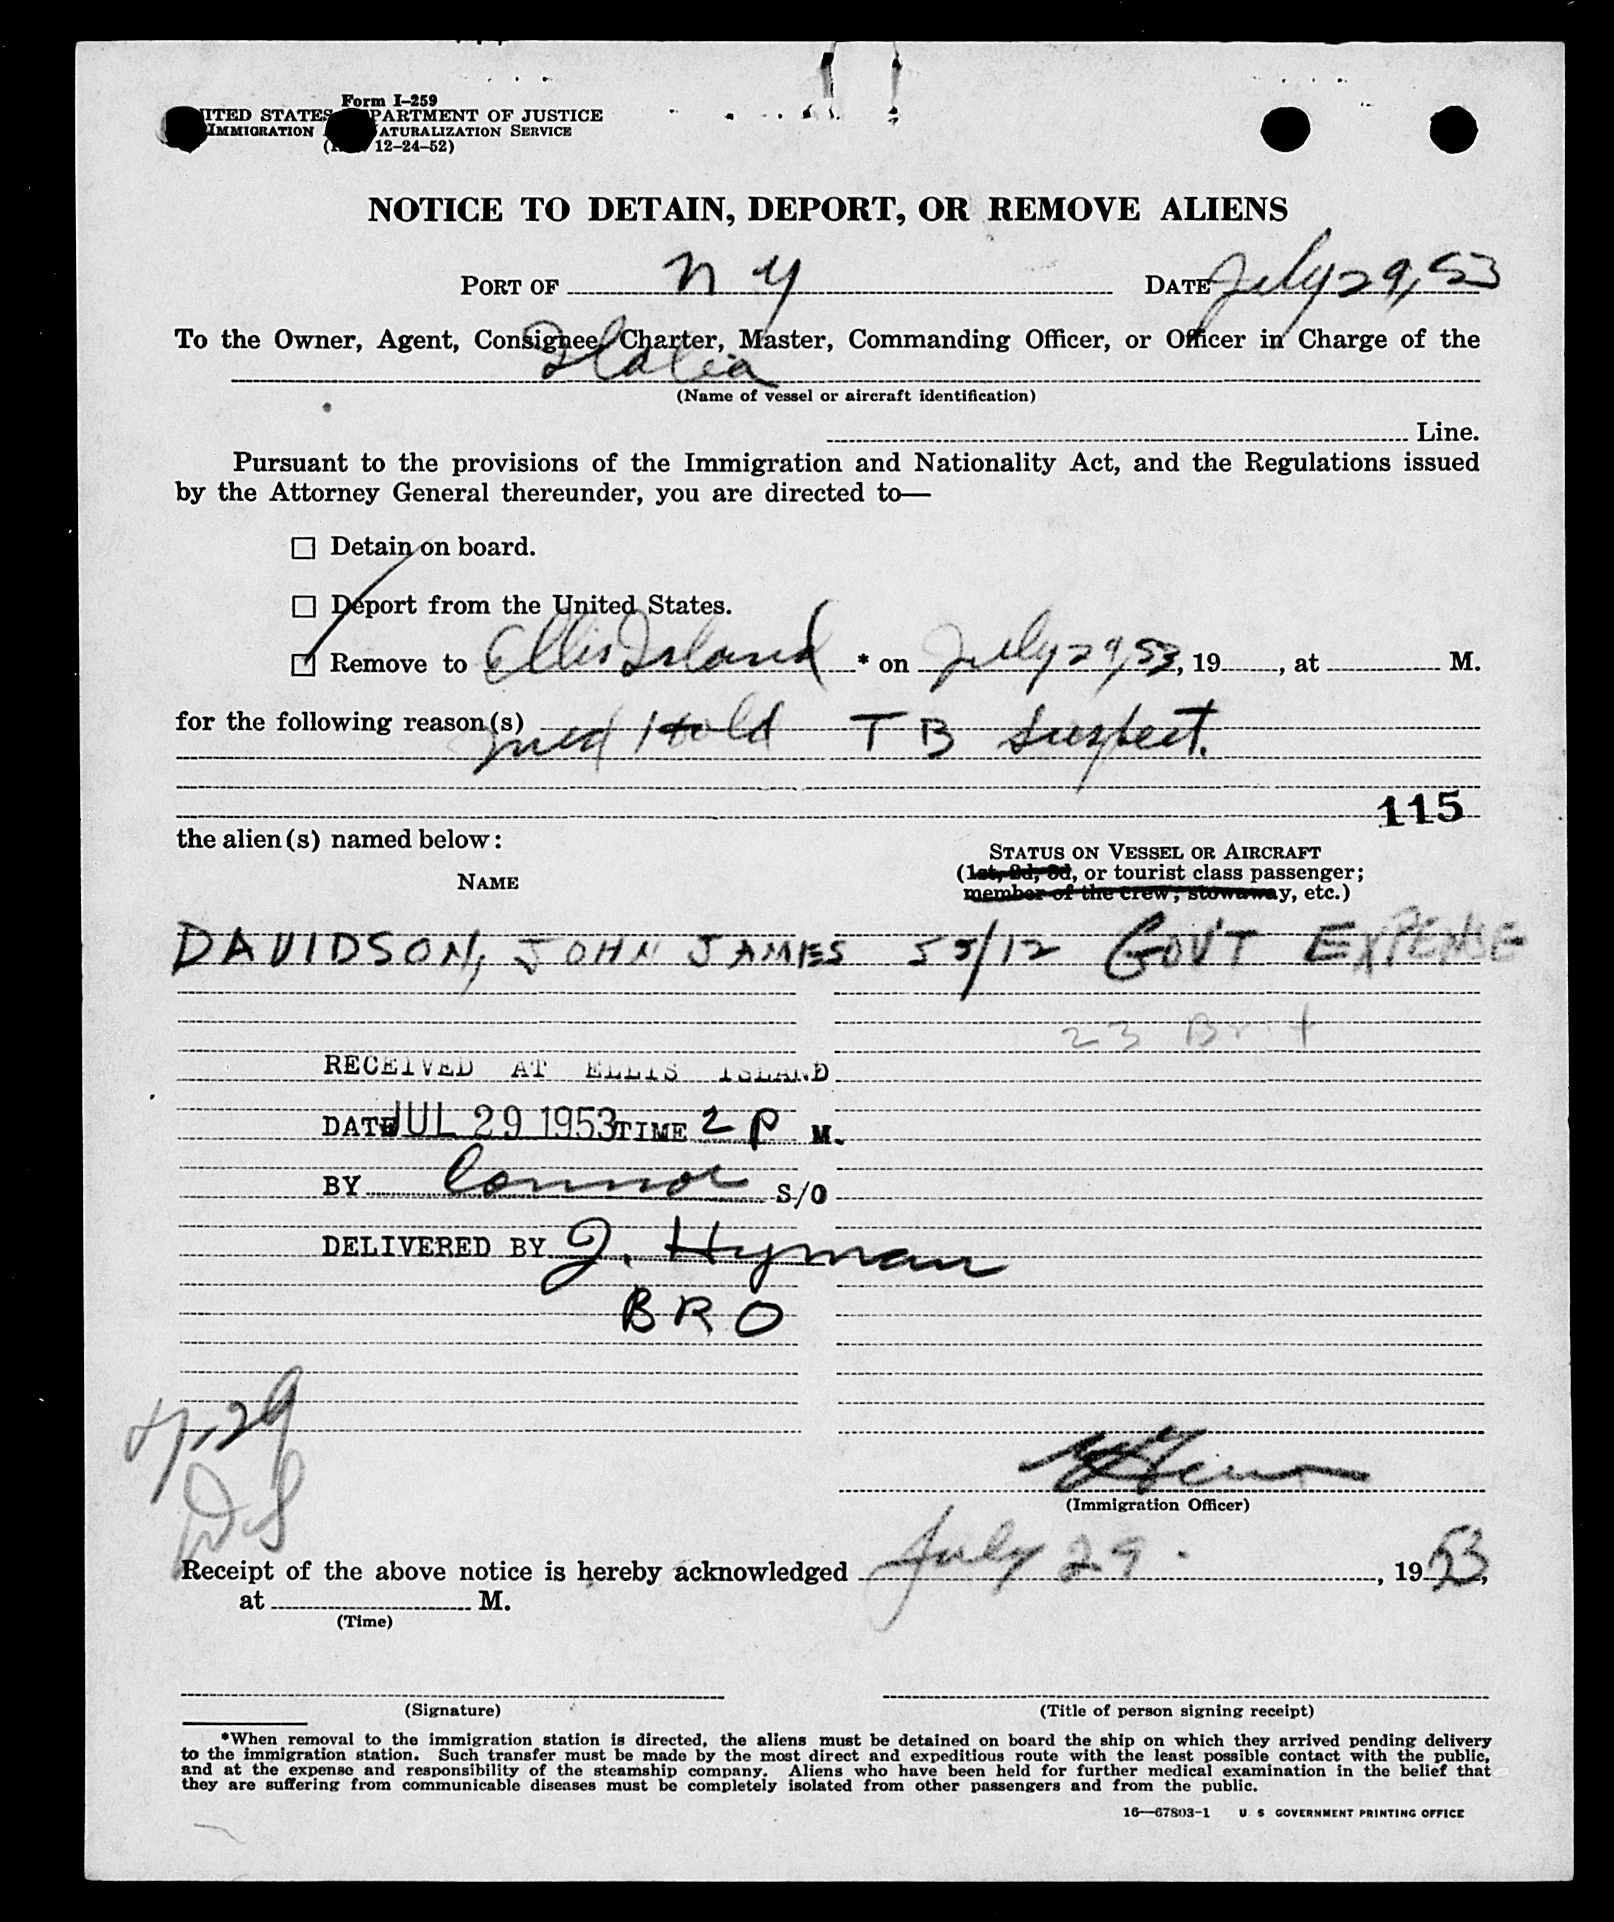 Form I-259
ITED STATES PARTMENT OF JUSTICE
IMMIGRATION ATURALIZATION SERVICE
12-24-52)
NOTICE TO DETAIN, DEPORT, OR REMOVE ALIENS
PORT OF N Y DATE July 29, 53
To the Owner, Agent, Consignee, Charter, Master, Commanding Officer, or Officer in Charge of the
Italia
(Name of vessel or aircraft identification)
Line.
Pursuant to the provisions of the Immigration and Nationality Act, and the Regulations issued
by the Attorney General thereunder, you are directed to—
Detain on board.
Deport from the United States.
Remove to Ellis Island * on July 29, 53, 19 , at M.
for the following reason(s)
Med Hold TB Suspect.
115
the alien(s) named below:
STATUS ON VESSEL OR AIRCRAFT
NAME
(1st, 2d, 3d, or tourist class passenger;
member of the crew, stowaway, etc.)
DAVIDSON, JOHN JAMES 55/12 GOV'T EXPENSE
23 Brit
RECEIVED AT ELLIS ISLAND
DATE JUL 29 1953 TIME 2 P M.
BY Connor S/O
DELIVERED BY J. Hyman
BRO
(Immigration Officer)
Receipt of the above notice is hereby acknowledged July 29. , 19 53,
at M.
(Time)
(Signature) (Title of person signing receipt)
*When removal to the immigration station is directed, the aliens must be detained on board the ship on which they arrived pending delivery
to the immigration station. Such transfer must be made by the most direct and expeditious route with the least possible contact with the public,
and at the expense and responsibility of the steamship company. Aliens who have been held for further medical examination in the belief that
they are suffering from communicable diseases must be completely isolated from other passengers and from the public.
16—67803-1 U S GOVERNMENT PRINTING OFFICE